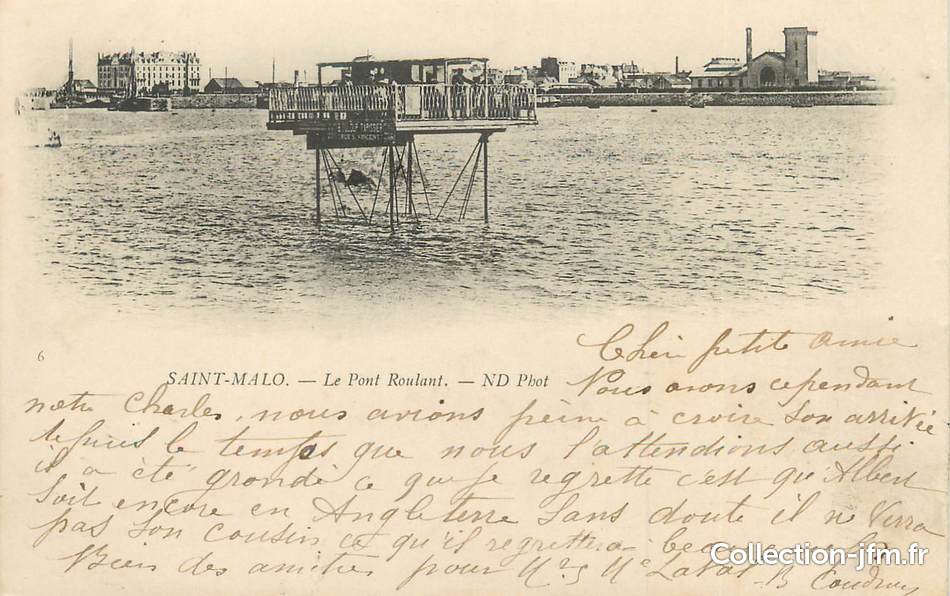 RUE S. VINCENT
6
SAINT-MALO. — Le Pont Roulant. — ND Phot
Chère petite amie
Nous avons cependant
notre Charles, nous avions peine à croire son arrivée
depuis le temps que nous l'attendions aussi
il a été grondé ce que je regrette c'est qu'Albert
soit encore en Angleterre sans doute il ne verra
pas son cousin ce qu'il regrettera beaucoup
Bien des amitiés pour Mr & Me Laval B
Collection-jfm.fr